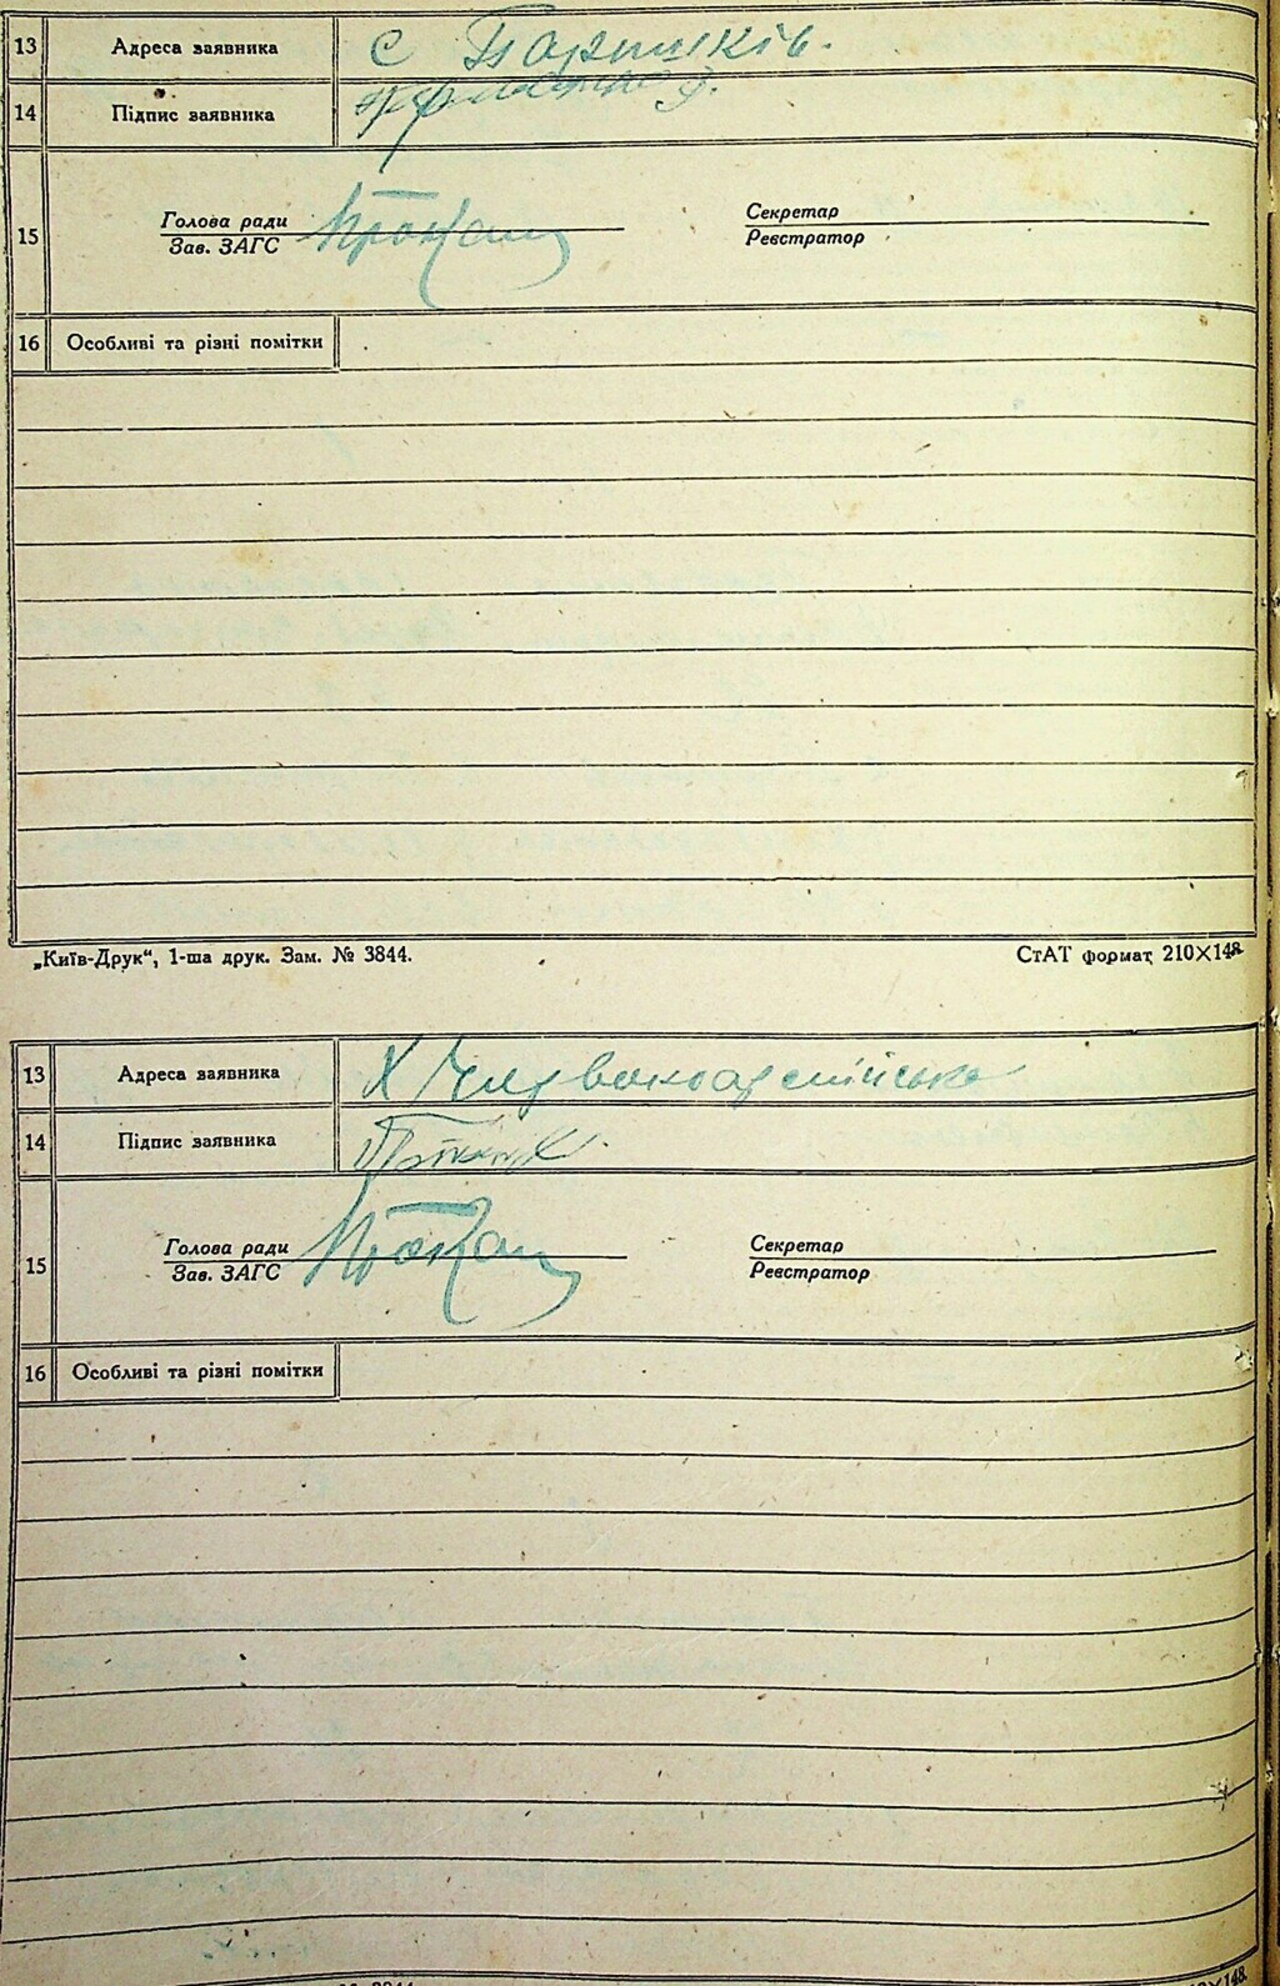 13 Адреса заявника с Паришків.
14 Підпис заявника
Голова ради
Секретар
15
Зав. ЗАГС
Реєстратор
16 Особливі та різні помітки
„Київ-Друк“, 1-ша друк. Зам. № 3844. СтАТ формат 210×148
13 Адреса заявника Х Червоноармійське
14 Підпис заявника
Голова ради
Секретар
15
Зав. ЗАГС
Реєстратор
16 Особливі та різні помітки